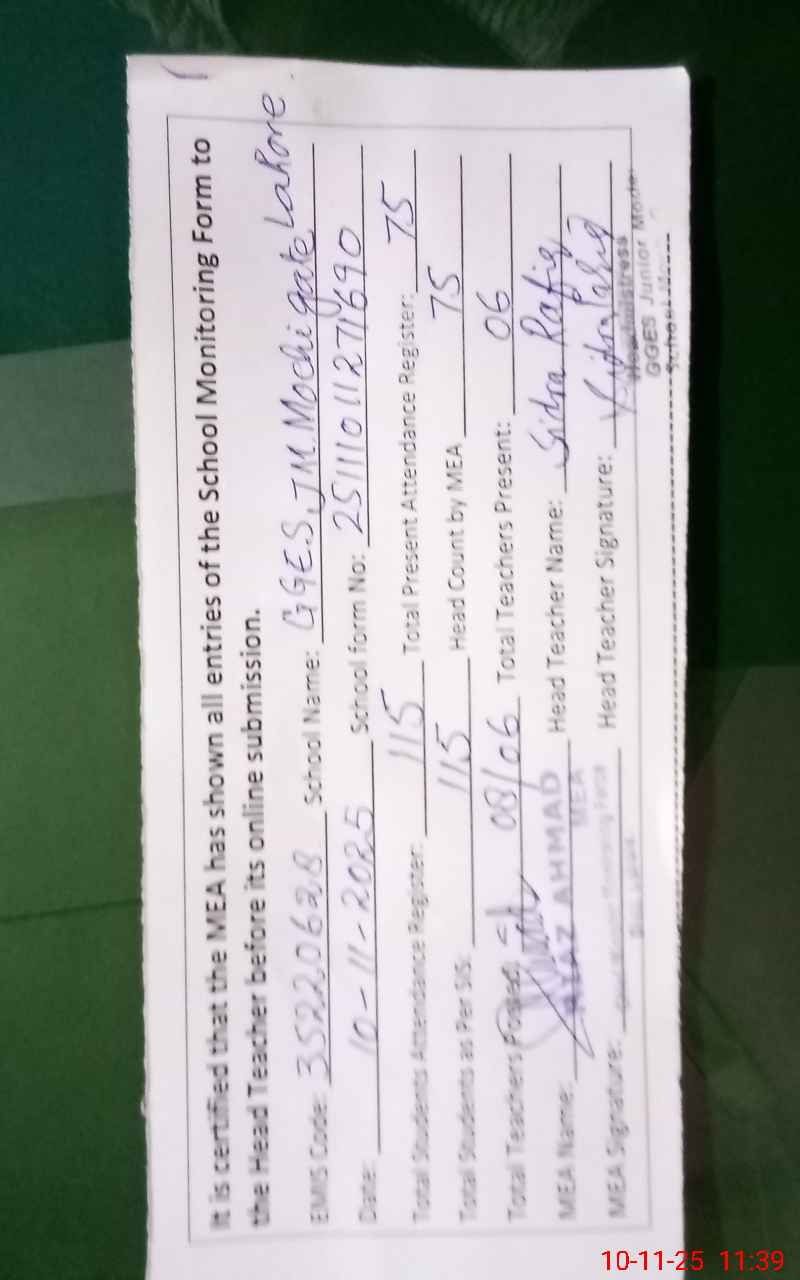 It is certified that the MEA has shown all entries of the School Monitoring Form to
the Head Teacher before its online submission.
EMIS Code: 35220628 School Name: GGES JM Mochi gate Lahore.
Date: 10-11-2025 School form No: 251110112271690
Total Students Attendance Register: 115 Total Present Attendance Register: 75
Total Students as Per SIS: 115 Head Count by MEA 75
Total Teachers Posted: 08/06 Total Teachers Present: 06
MEA Name: AHMAD Head Teacher Name: Sidra Rafiq
MEA
MEA Signature: Head Teacher Signature:
Headmistress
GGES Junior Model
School
10-11-25 11:39